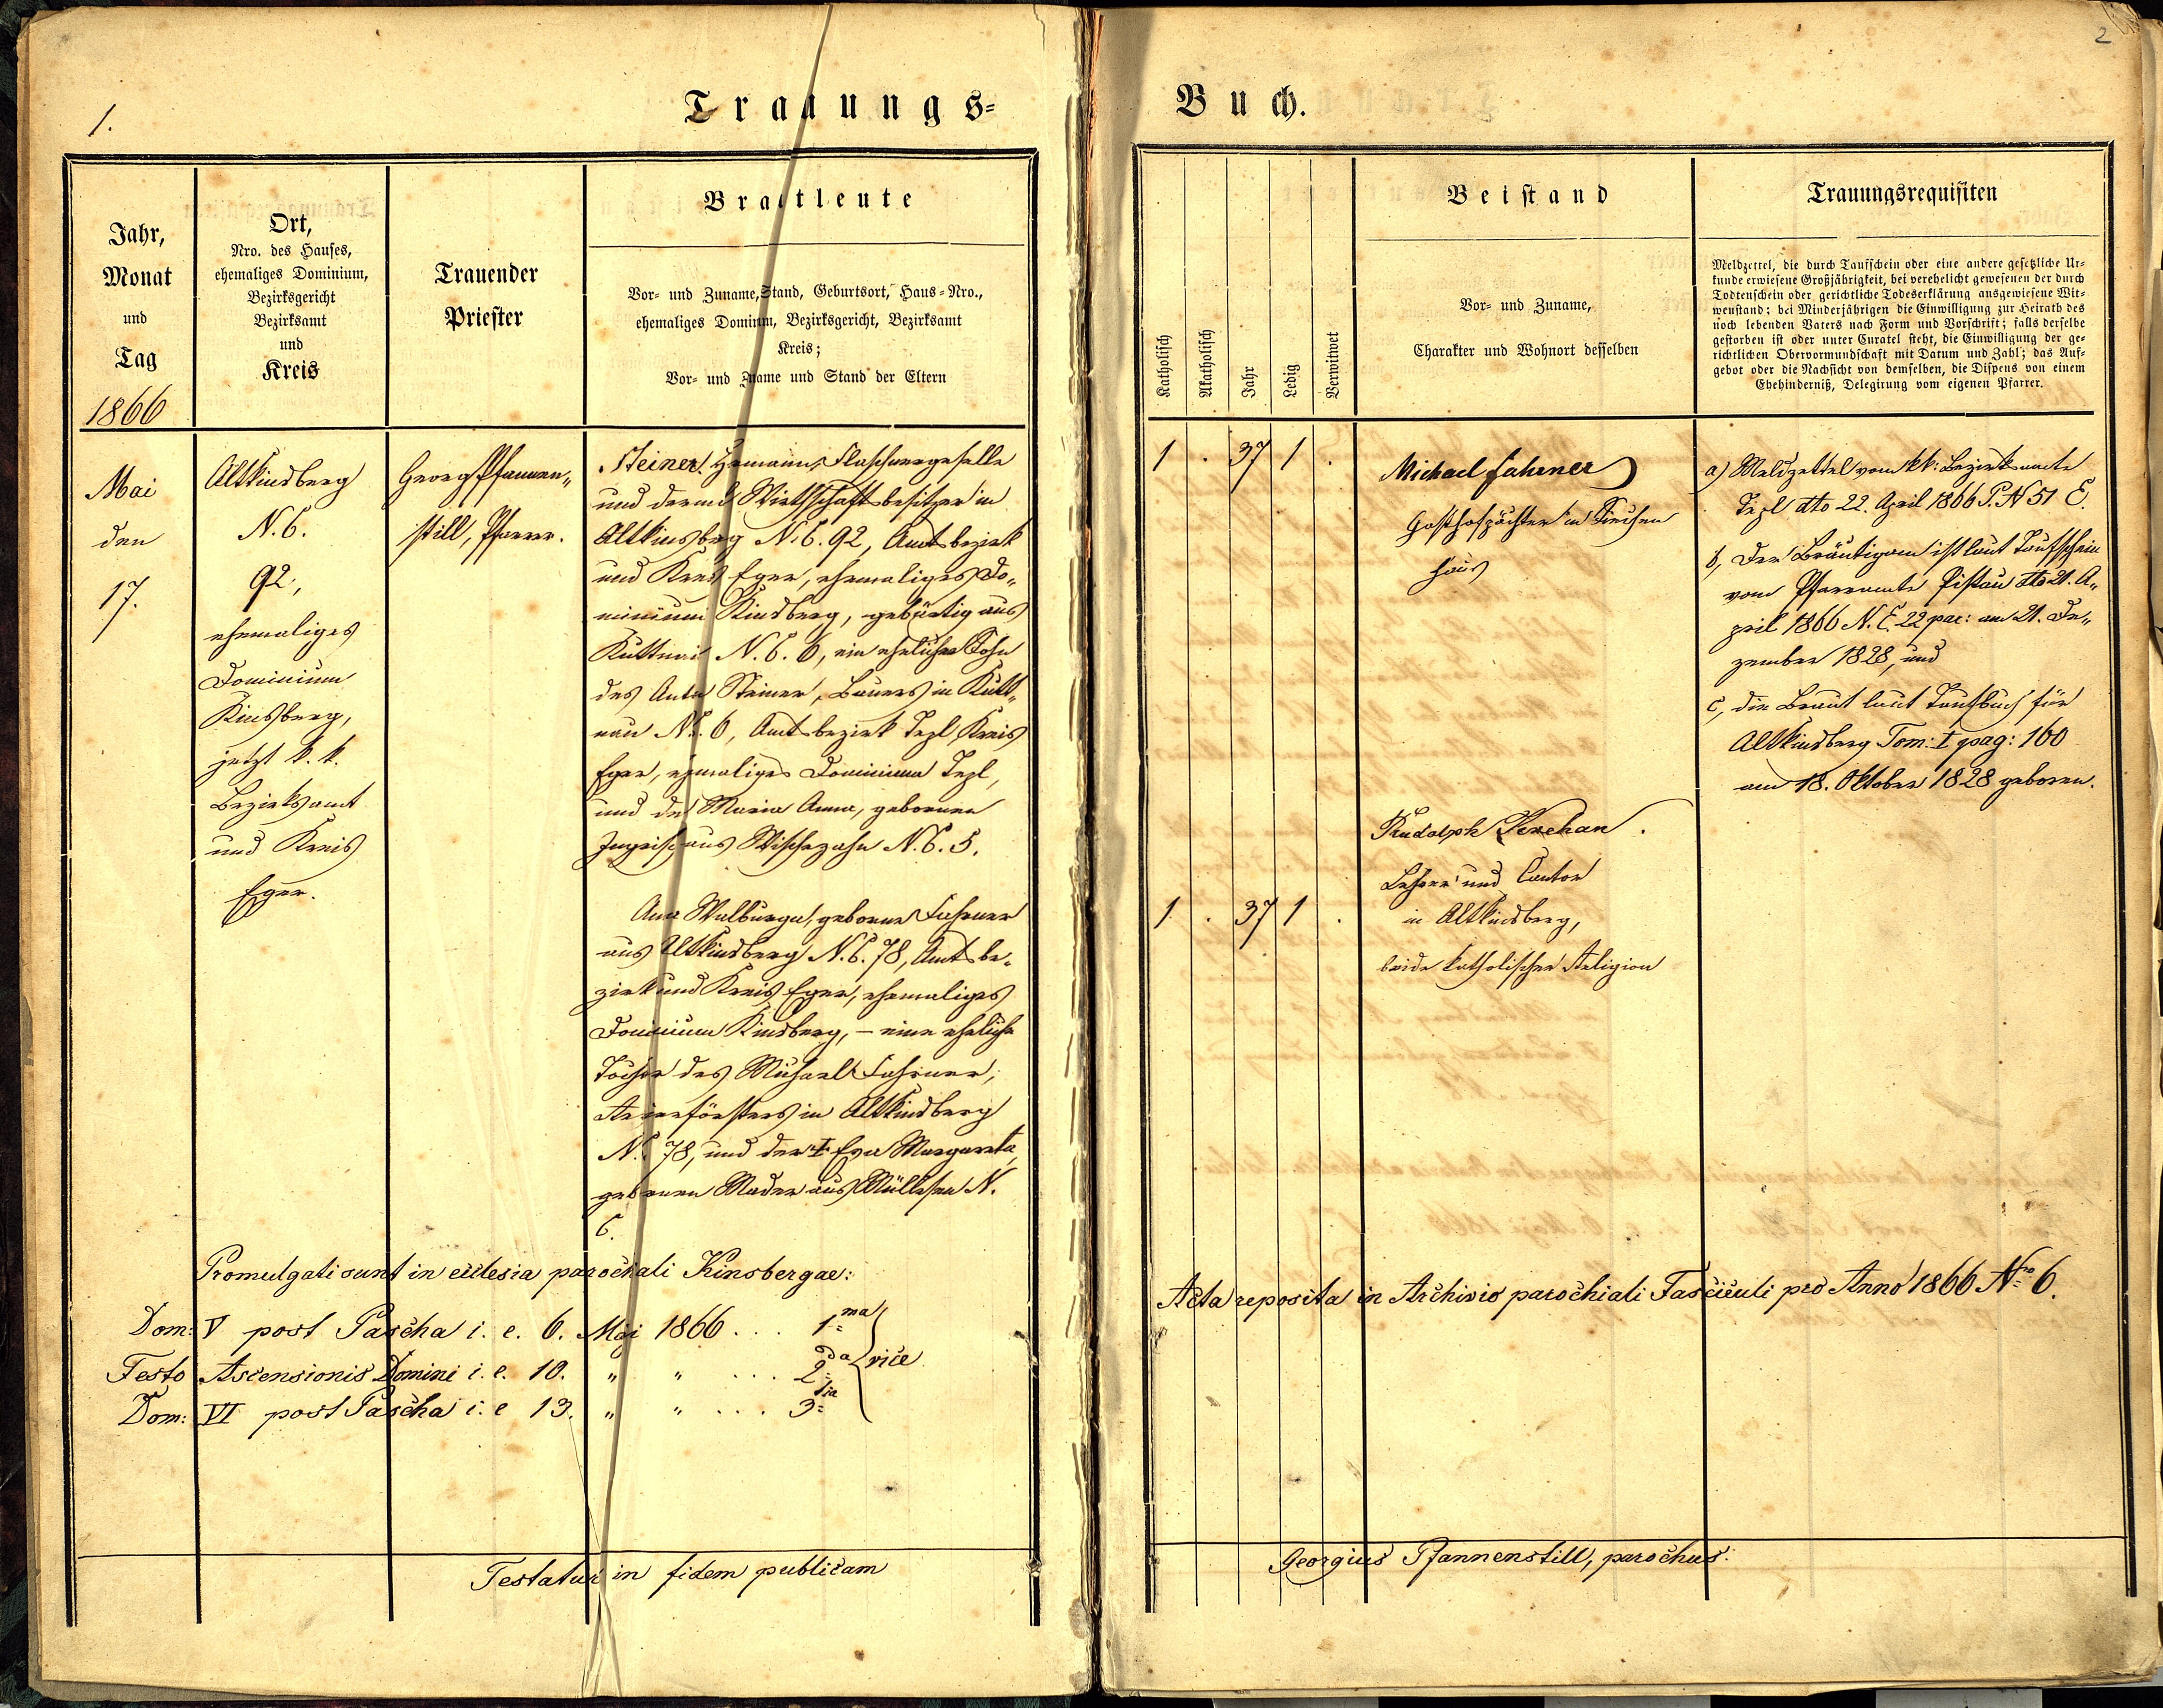 1.
2
Trauungs-
Buch.
Jahr,
Monat
und
Tag
1866
Ort,
Nro. des Hauses,
ehemaliges Dominium,
Bezirksgericht
Bezirksamt
und
Kreis
Trauender
Priester
Brautleute
Vor- und Zuname, Stand, Geburtsort, Haus-Nro.,
ehemaliges Dominium, Bezirksgericht, Bezirksamt
Kreis;
Vor- und Zuname und Stand der Eltern
Katholisch
Akatholisch
Jahr
Ledig
Verwitwet
Beistand
Vor- und Zuname,
Charakter und Wohnort desselben
Trauungsrequisiten
Meldzettel, die durch Taufschein oder eine andere gesetzliche Ur-
kunde erwiesene Großjährigkeit, bei verehelicht gewesenen der durch
Todtenschein oder gerichtliche Todeserklärung ausgewiesene Wit-
wenstand; bei Minderjährigen die Einwilligung zur Heirath des
noch lebenden Vaters nach Form und Vorschrift; falls derselbe
gestorben ist oder unter Curatel steht, die Einwilligung der ge-
richtlichen Obervormundschaft mit Datum und Zahl; das Auf-
gebot oder die Nachsicht von demselben, die Dispens von einem
Ehehinderniß, Delegirung vom eigenen Pfarrer.
Mai
den
17.
Altkinsberg
N. C.
92,
ehemaliges
Dominium
Kinsberg,
jetzt k. k.
Bezirksamt
und Kreis
Eger.
Georg Pfannen„
still, Pfarrer.
Steiner Hermann, Flaschnergeselle
und derend Wirthschaftsbesitzer in
Altkinsberg N. C. 92, Amtsbezirk
und Kreis Eger, ehemaliges Do„
minium Kinsberg, gebürtig aus
Kuttnau N. C. 6, ein ehelicher Sohn
des Anton Steiner, Bauers in Kutt„
nau N. C. 6, Amtsbezirk Tepl, Kreis
Eger, ehemaliges Dominium Tepl,
und der Maria Anna, gebornen
aus Wischezahn N. C. 5.
Anna Walburga, geborne Fahrner
aus Altkinsberg N. C. 78, Amtsbe„
zirk und Kreis Eger, ehemaliges
Dominium Kinsberg, – eine eheliche
Tochter des Michael Fahrner,
Revierförsters in Altkinsberg
N. C. 78, und der † Eva Margareta,
gebornen Mader aus Müllessen N.
C.
1 . 37 1 .
Michael Fahrner
Gasthofpächter in Siechen
haus
Rudolph Kerchan.
Lehrer und Cantor
in Altkinsberg,
beide katholischer Religion
1 . 37 1 .
a) Meldzettel vom kk: Bezirksamte
Tepl dto 22. April 1866 P. N 51 E.
b, Der Bräutigam ist laut Taufschein
vom Pfarramte Pistau dto 21. A„
pril 1866 N. E. 22 par: am 21. De„
zember 1828, und
c, die Braut laut Taufbuch für
Altkinsberg Tom: I pag: 160
am 18. Oktober 1828 geboren.
Promulgati sunt in ecclesia parochiali Kinsbergae:
Dom: V post Pascha i. e. 6. Maj 1866 . . . 1ma
Festo Ascensionis Domini i. e. 10. „ „ . . . 2da } vice
Dom: VI post Pascha i. e 13. „ „ . . . 3tia
Acta reposita in Archivio parochiali Fasciculi pro Anno 1866 Nro 6.
Testatur in fidem publicam
Georgius Pfannenstill, parochus.